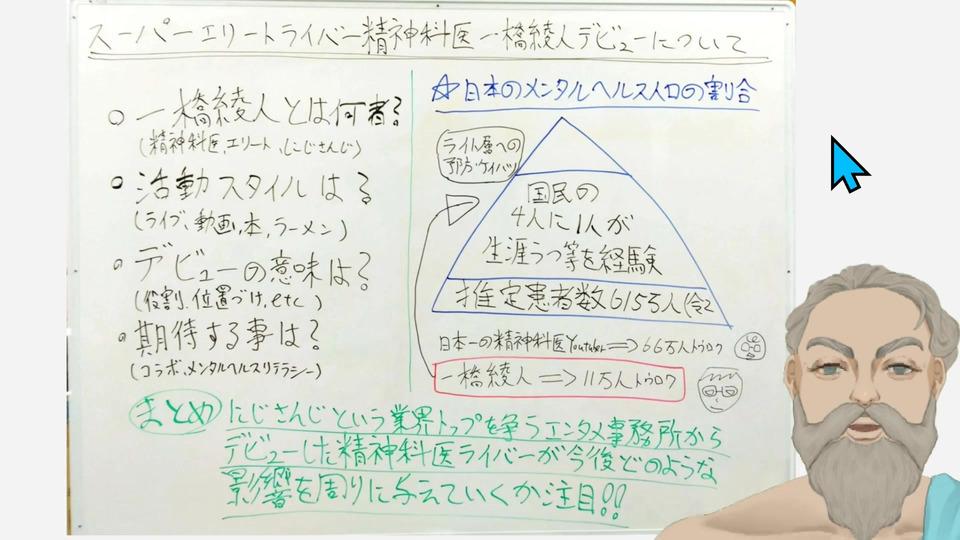 スーパーエリートライバー精神科医一橋綾人デビューについて
○ 一橋綾人とは何者?
(精神科医,エリート,にじさんじ)
○ 活動スタイルは?
(ライブ、動画,本,ラーメン)
○ デビューの意味は?
(役割、位置づけ,etc)
● 期待する事は?
(コラボ,メンタルヘルスリテラシー)
☆日本のメンタルヘルス人口の割合
ライト層への
予防・ケイハツ
国民の
4人に1人が
生涯うつ等を経験
推定患者数615万人(令2
日本一の精神科医Youtuber⇒66万人トウロク
一橋綾人⇒11万人トウロク
まとめ にじさんじという業界トップを争うエンタメ事務所から
デビューした精神科医ライバーが今後どのような
影響を周りに与えていくか注目!!